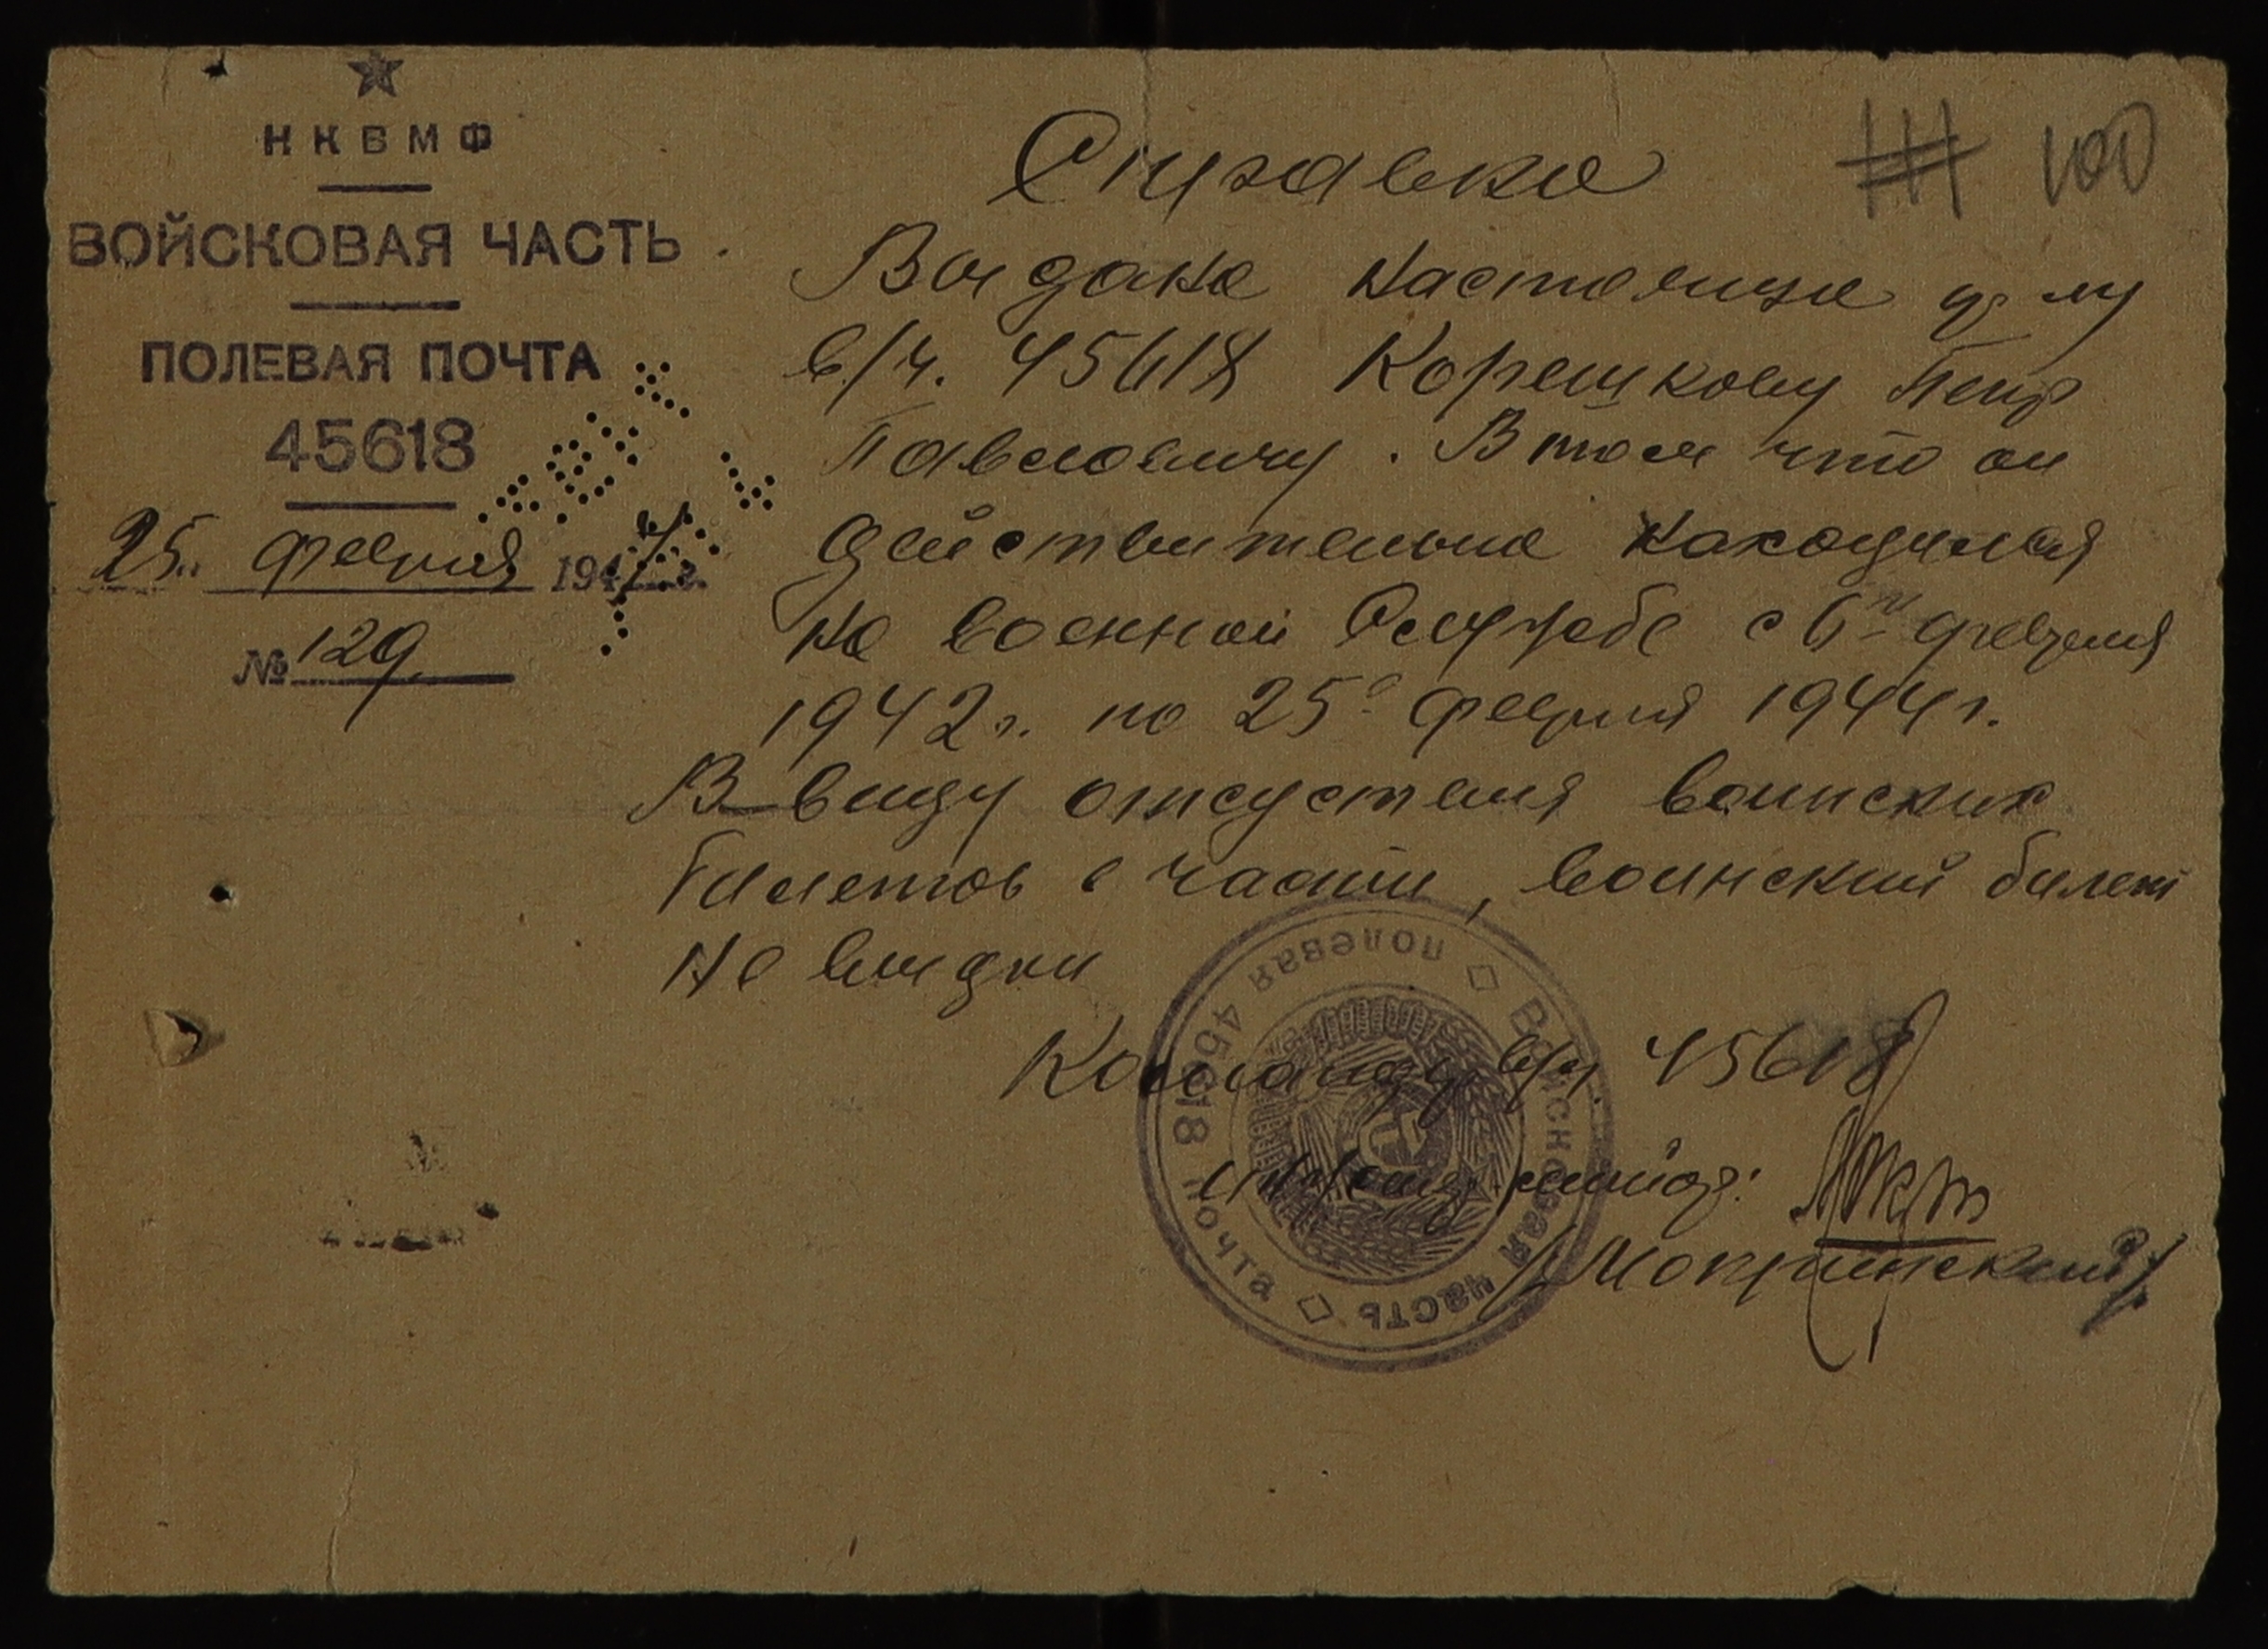 НКВМФ
ВОЙСКОВАЯ ЧАСТЬ
ПОЛЕВАЯ ПОЧТА
45618
25 февраля 1944 г.
№ 129
100
Справка
Выдана настоящая
в/ч. 45618 Корешкову Петр
Павловичу. В том что он
действительно находился
на военной службе с 6го февраля
1942 г. по 25е февраля 1944 г.
В виду отсуствия воинских
билетов в части, воинский билет
не выдан
Командир в/ч. 45618
/Мокринский/
Войсковая часть
полевая почта 45618